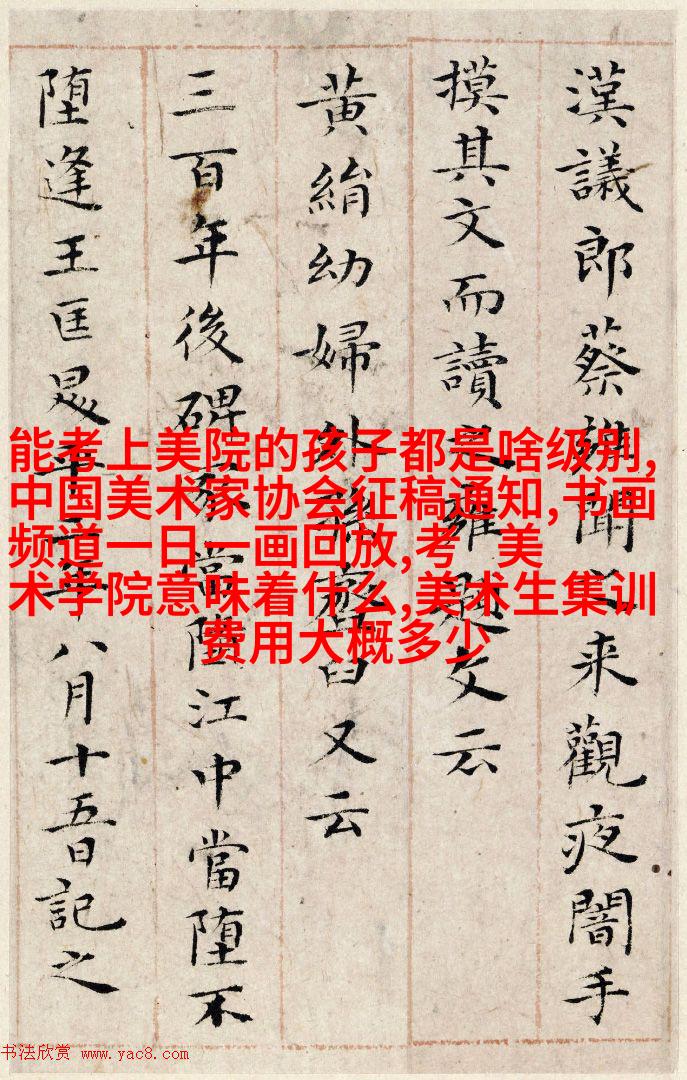 漢議郎蔡雍聞之来觀夜闇手
摸其文而讀之雍題文云
黄絹幼婦外孫臼又云
三百年後碑冢當堕江中當堕不
堕逢王匡昇平二年八月十五日記之
能考上美院的孩子都是啥级别,
中国美术家协会征稿通知,书画
频道一日一画回放,考 美
术学院意味着什么,美术生集训
费用大概多少
书法欣赏 www.yac8.com